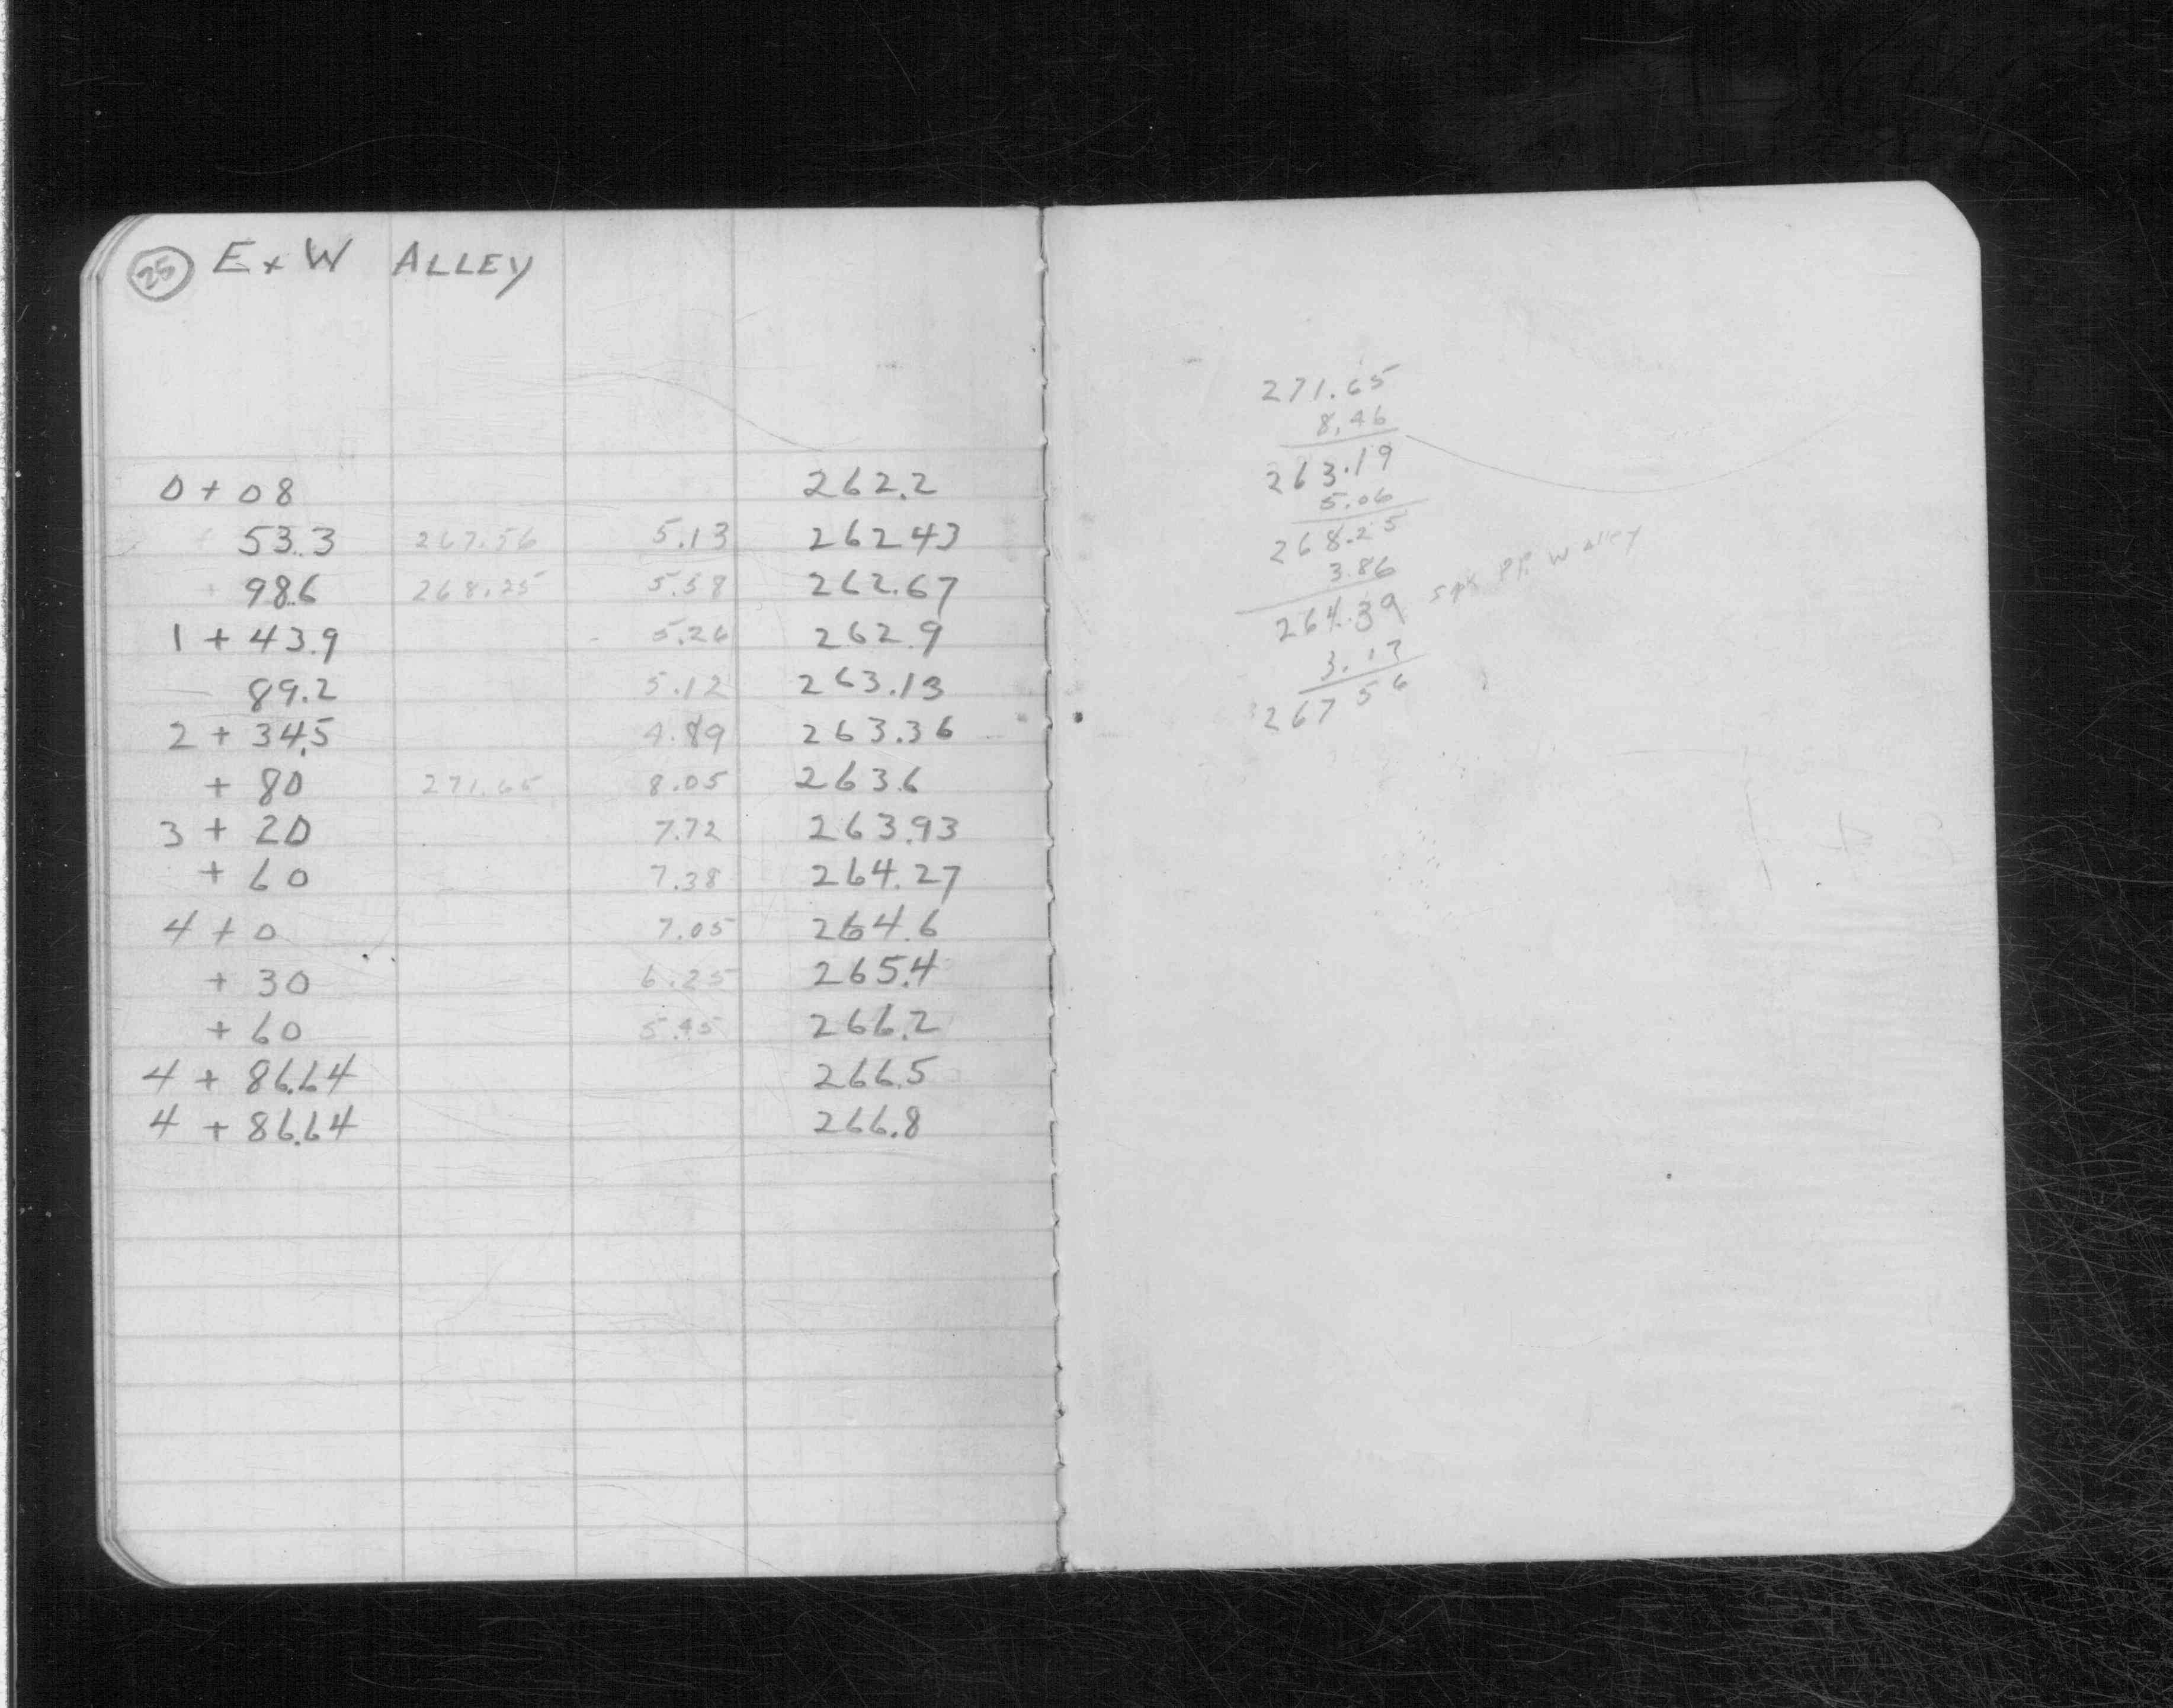 25 E x W ALLEY
0 + 08 262.2
53.3 267.56 5.13 262.43
98.6 268.25 5.58 262.67
1 + 43.9 5.26 262.9
89.2 5.12 263.13
2 + 34.5 4.89 263.36
+ 80 271.65 8.05 263.6
3 + 20 7.72 263.93
+ 60 7.38 264.27
4 + 0 7.05 264.6
+ 30 6.25 265.4
+ 60 5.45 266.2
4 + 86.64 266.5
4 + 86.64 266.8
271.65
8.46
263.19
5.06
268.25
3.86
264.39 spk PP. W alley
3.17
267 56